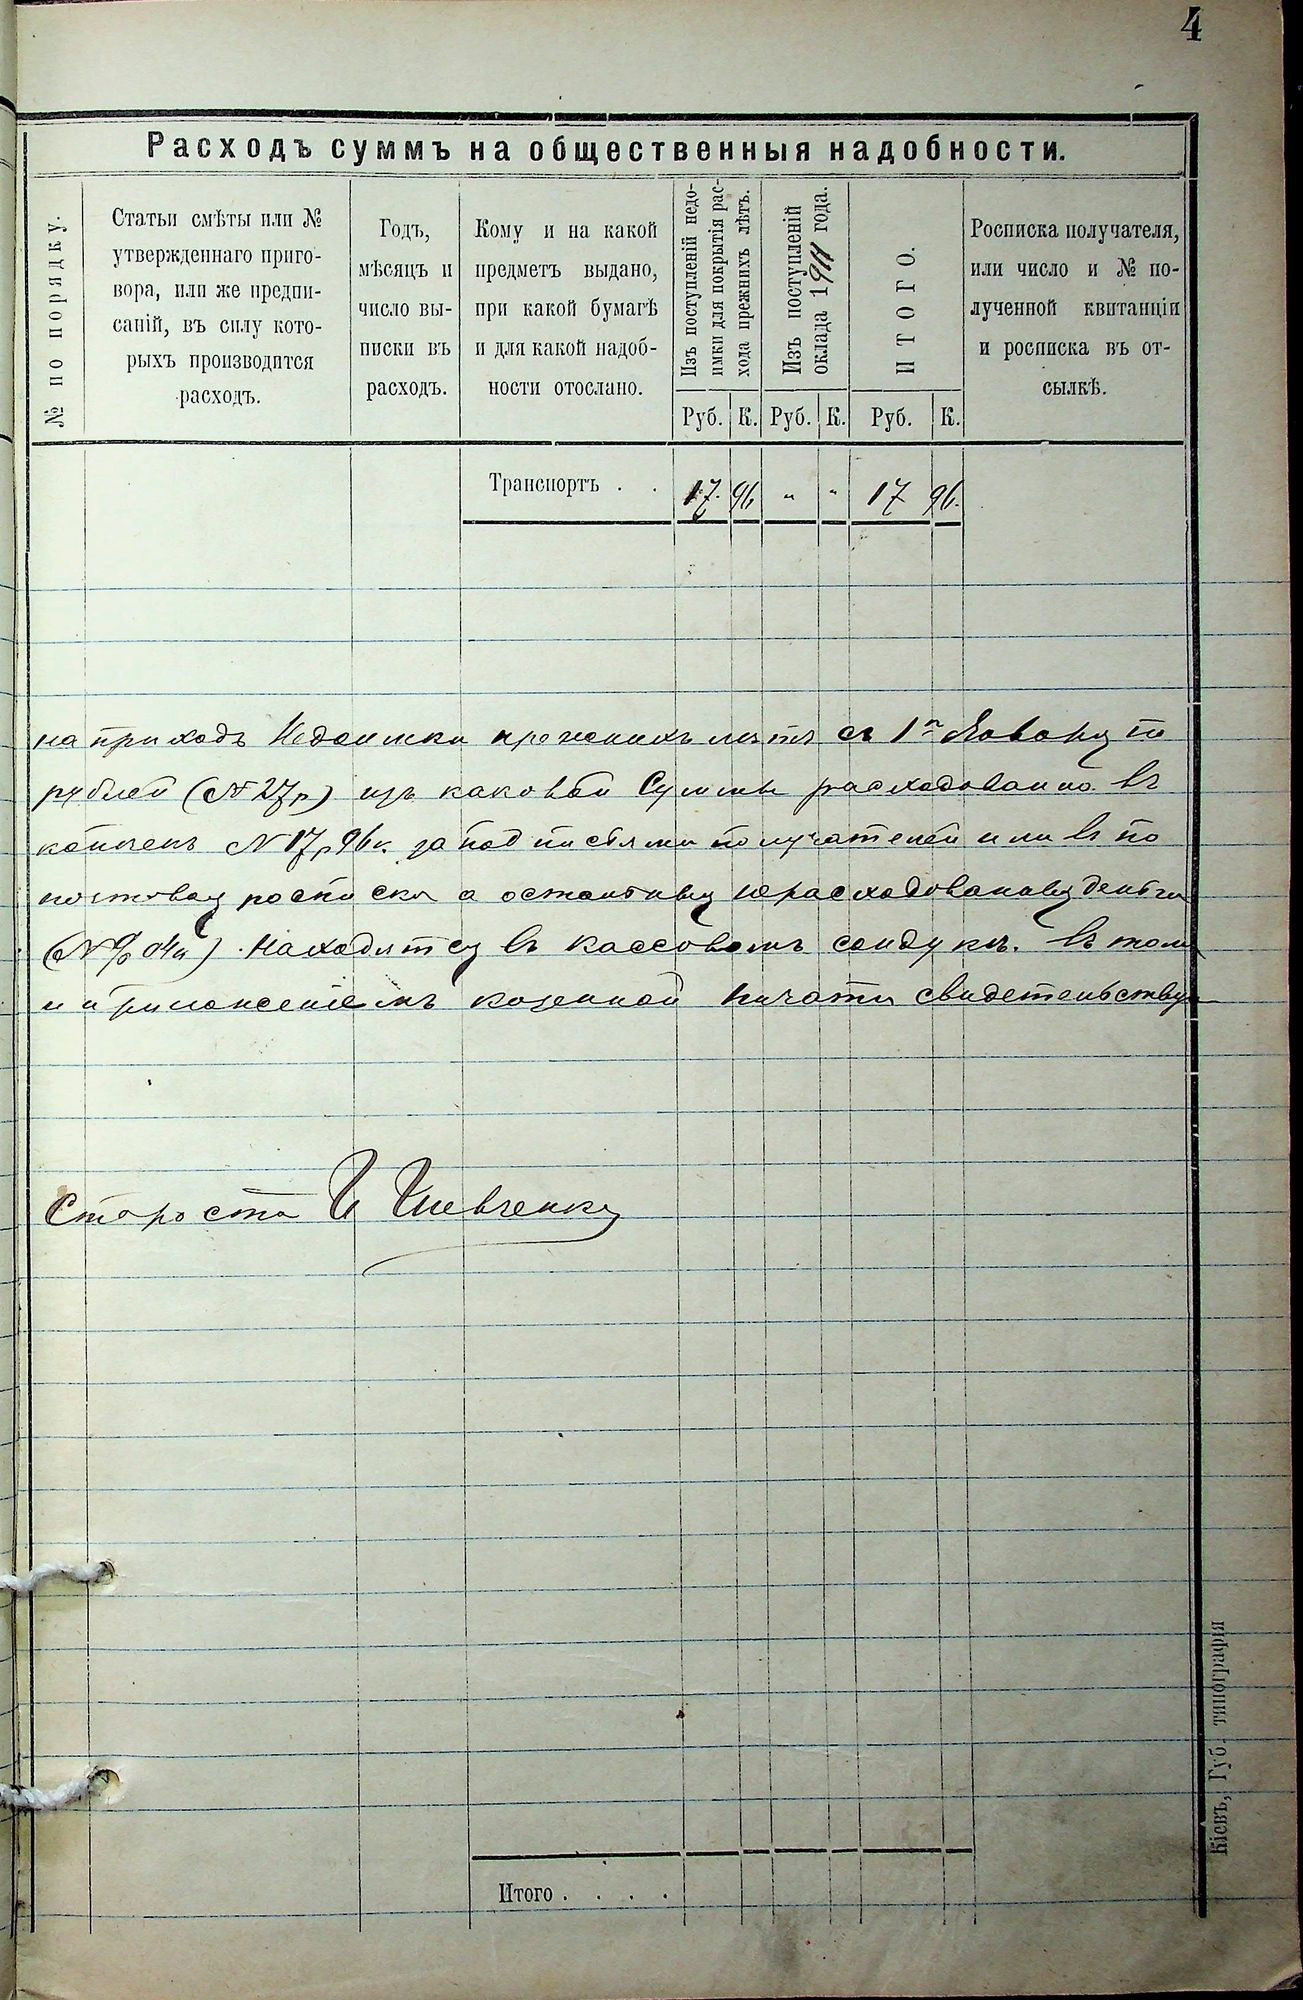 4
Расходъ суммъ на общественныя надобности.
№ по порядку.
Статьи смѣты или №
утвержденнаго приго-
вора, или же предпи-
саній, въ силу кото-
рыхъ производится
расходъ.
Годъ,
мѣсяцъ и
число вы-
писки въ
расходъ.
Кому и на какой
предметъ выдано,
при какой бумагѣ
и для какой надоб-
ности отослано.
Изъ поступленій недо-
имки для покрытія рас-
хода прежнихъ лѣтъ.
Изъ поступленій
оклада 1911 года.
ИТОГО.
Росписка получателя,
или число и № по-
лученной квитанціи
и росписка въ от-
сылкѣ.
Руб. К. Руб. К. Руб. К.
Транспортъ . . 17. 96 " " 17 96.
на приходъ Недоимки прежнихъ лѣтъ съ 1го Января по
рублей (№ 27р) изъ каковой Суммы расходовано въ
копѣекъ № 17р 96к за подписями получателей или въ по
росписки а остальныя деньги
04к) находятся въ кассовомъ сондукѣ. въ томъ
и приложеніемъ козенной пичати свидетельствую
Староста И Шевченко
Итого . . . .
Кіевъ, Губ. типографія